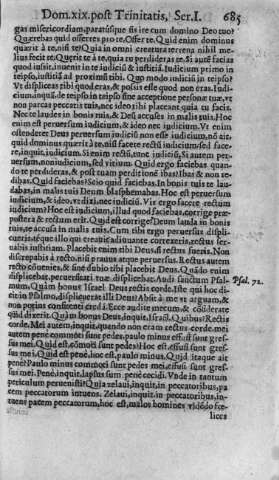 Dom.xix.post Trinitatis, Ser.I. 685
gas misericordiam, paratúsque sis ire cum domino Deo tuo?
Quærebas quid offerres pro te. Offer te. Quid enim dominus
quærit à te, nisi te? Quia in omni creatura terrena nihil me-
lius fecit te. Quærit te à te, quia tu perdideras te. Si autē facias
quod iussit, inuenit in te iudiciū & iustitiam. Iudicium primo in
teipso, iustitiā ad proximū tibi. Quo modo iudiciū in teipso?
Vt displiceas tibi quod eras, & possis esse quod non eras. Iudi-
cium, inquā, de teipso in teipso sine acceptione personæ tuæ, vt
non parcas peccatis tuis, nec ideo tibi placeant quia tu facis.
Nec te laudes in bonis tuis, & Deū accuses in malis tuis. Hoc
enim est peruersum iudiciū, & ideo nec iudicium. Vt enim
ostenderet Deus peruersum iudiciū non esse iudicium, nō ait,
quid dominus quærit à te, nisi facere rectū iudicium, sed face-
re, inquit, iudicium. Si enim rectū, tunc iudiciū, Si autem per-
uersum, non iudicium, sed vitium. Quid ergo faciebas quan-
do te perdideras, & post tuam perditione ibas? Ibas & non re-
dibas. Quid faciebas? Scio quid faciebas. In bonis tuis te lau-
dabas, in malis tuis Deum blasphemabas. Hoc est peruersum
iudicium, & ideo, vt dixi, nec iudiciū. Vis ergo facere rectum
iudicium? Hoc est iudicium, illud quod faciebas, corrige præ-
postera & rectum erit. Quid est corrige? Deum lauda in bonis
tuis, te accusa in malis tuis. Cum tibi ergo peruersus displi-
cueris, teque illo qui creauit adiuuante correxeris, rectus ser-
uabis iustitiam. Placebit enim tibi Deus, si rectus fueris. Non
discrepabis à recto, nisi prauus atque peruersus. Rectus autem
recto cōuenies, & sine dubio tibi placebit Deus. Quādo enim
displicebat, peruersitati tuæ displicebat. Audi sanctum Psal- Psal. 72.
mum, Quàm bonus Israel Deus rectis corde. Iste qui hoc di-
cit in Psalmo, displicuerat illi Deus? Absit à me vt arguam, &
non potius consentienti credā. Ecce audite mecum & cōsiderate
quid dixerit. Quàm bonus Deus, inquit, Israël. Quibus? Rectis
corde. Mei autem, inquit, quando non eram rectus corde, mei
autem penè commoti sunt pedes, paulo minus effusi sunt gres-
sus mei. Quid est, cōmoti sunt pedes? Hoc est, effusi sunt gres-
sus mei. Quid est penè, hoc est, paulo minus. Quid itaque ait
penè? Paulo minus commoti sunt pedes, hoc est, effusi sunt gres-
sus mei. Penè, inquit, lapsus sum penè cecidi. Vnde in tantum
periculum peruenisti? Quia zelaui, inquit, in peccatoribus, pa-
cem peccatorum intuens. Zelaui, inquit, in peccatoribus, in-
tuens patem peccatorum, hoc est, malos homines vidēdo fœ-
lices